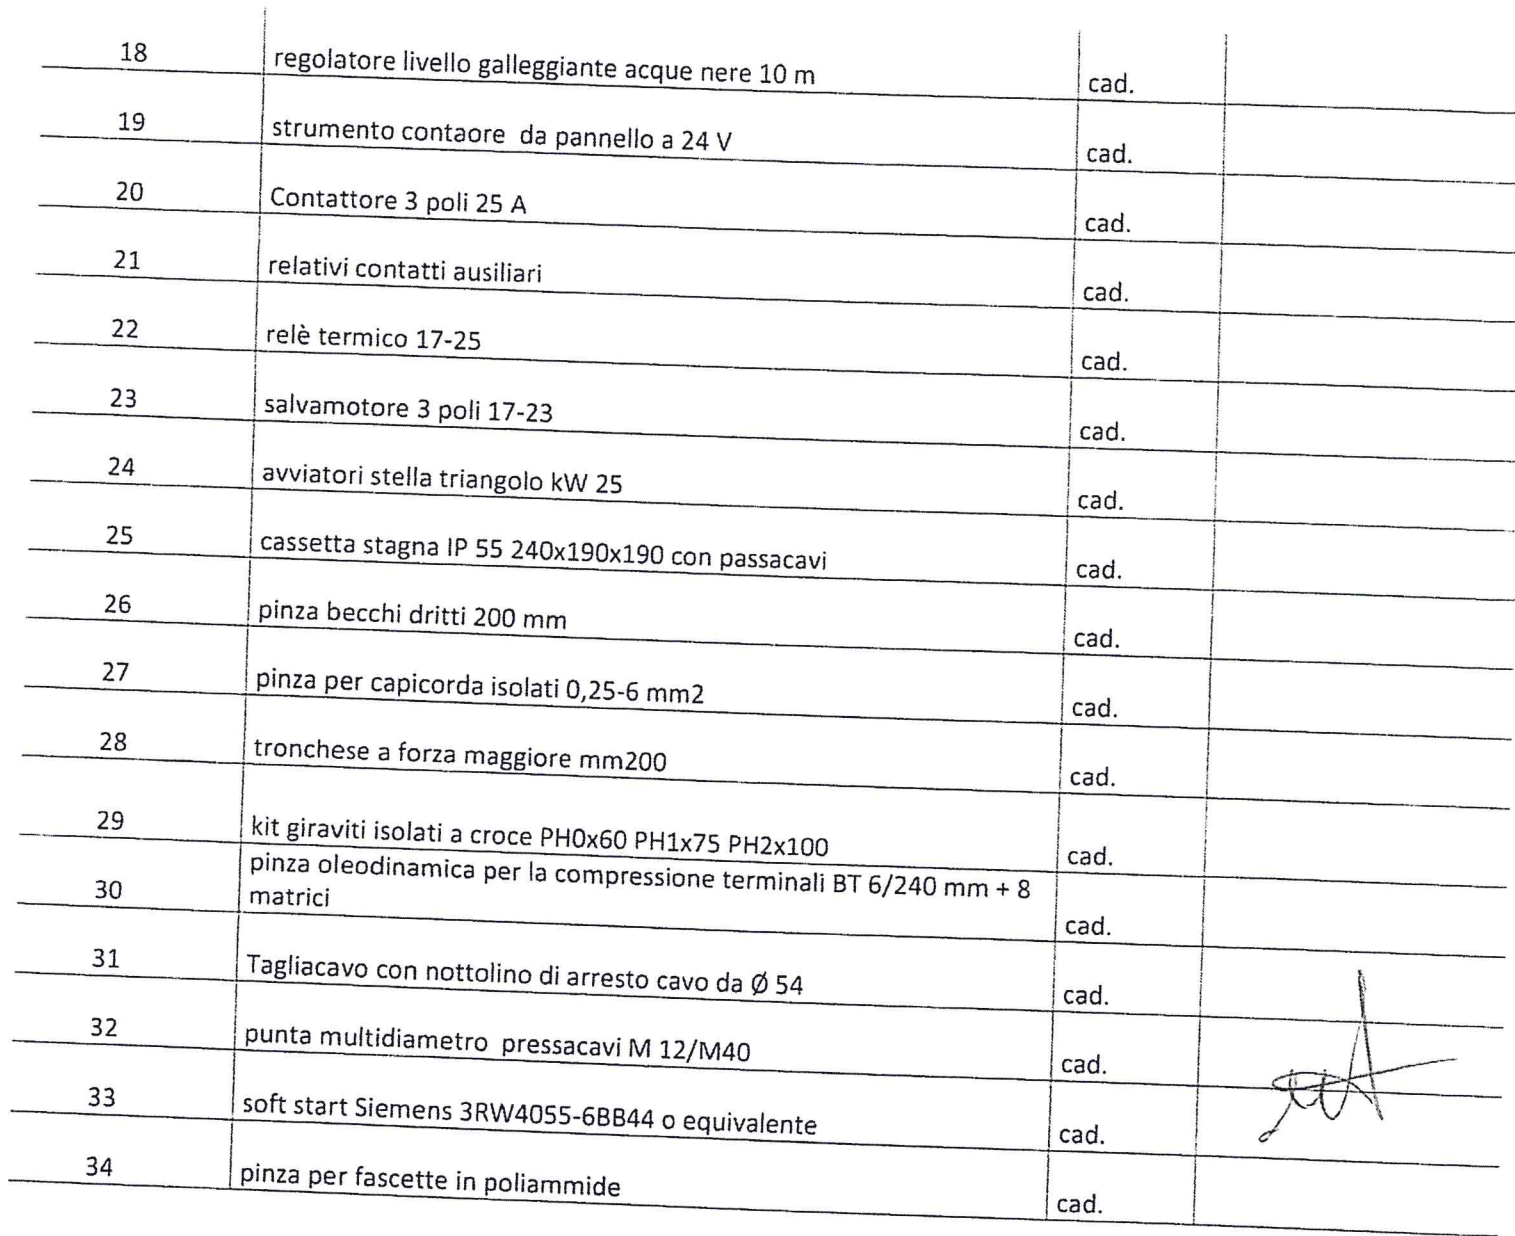 18 regolatore livello galleggiante acque nere 10 m cad.
19 strumento contaore da pannello a 24 V cad.
20 Contattore 3 poli 25 A cad.
21 relativi contatti ausiliari cad.
22 relè termico 17-25 cad.
23 salvamotore 3 poli 17-23 cad.
24 avviatori stella triangolo kW 25 cad.
25 cassetta stagna IP 55 240x190x190 con passacavi cad.
26 pinza becchi dritti 200 mm cad.
27 pinza per capicorda isolati 0,25-6 mm2 cad.
28 tronchese a forza maggiore mm200 cad.
29 kit giraviti isolati a croce PH0x60 PH1x75 PH2x100 cad.
pinza oleodinamica per la compressione terminali BT 6/240 mm + 8
30 matrici cad.
31 Tagliacavo con nottolino di arresto cavo da Ø 54 cad.
32 punta multidiametro pressacavi M 12/M40 cad.
33 soft start Siemens 3RW4055-6BB44 o equivalente cad.
34 pinza per fascette in poliammide cad.